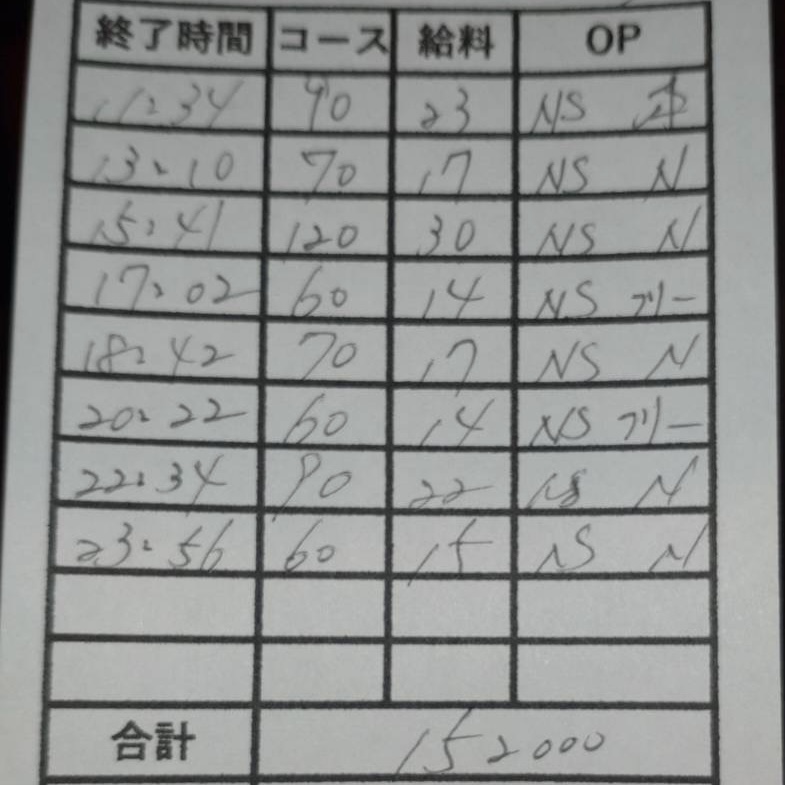 終了時間 コース 給料 OP
11:34 90 23 NS 本
13:10 70 17 NS N
15:41 120 30 NS N
17:02 60 14 NS フリー
18:42 70 17 NS N
20:22 60 14 NS フリー
22:34 90 22 NS N
23:56 60 15 NS N
合計 152000